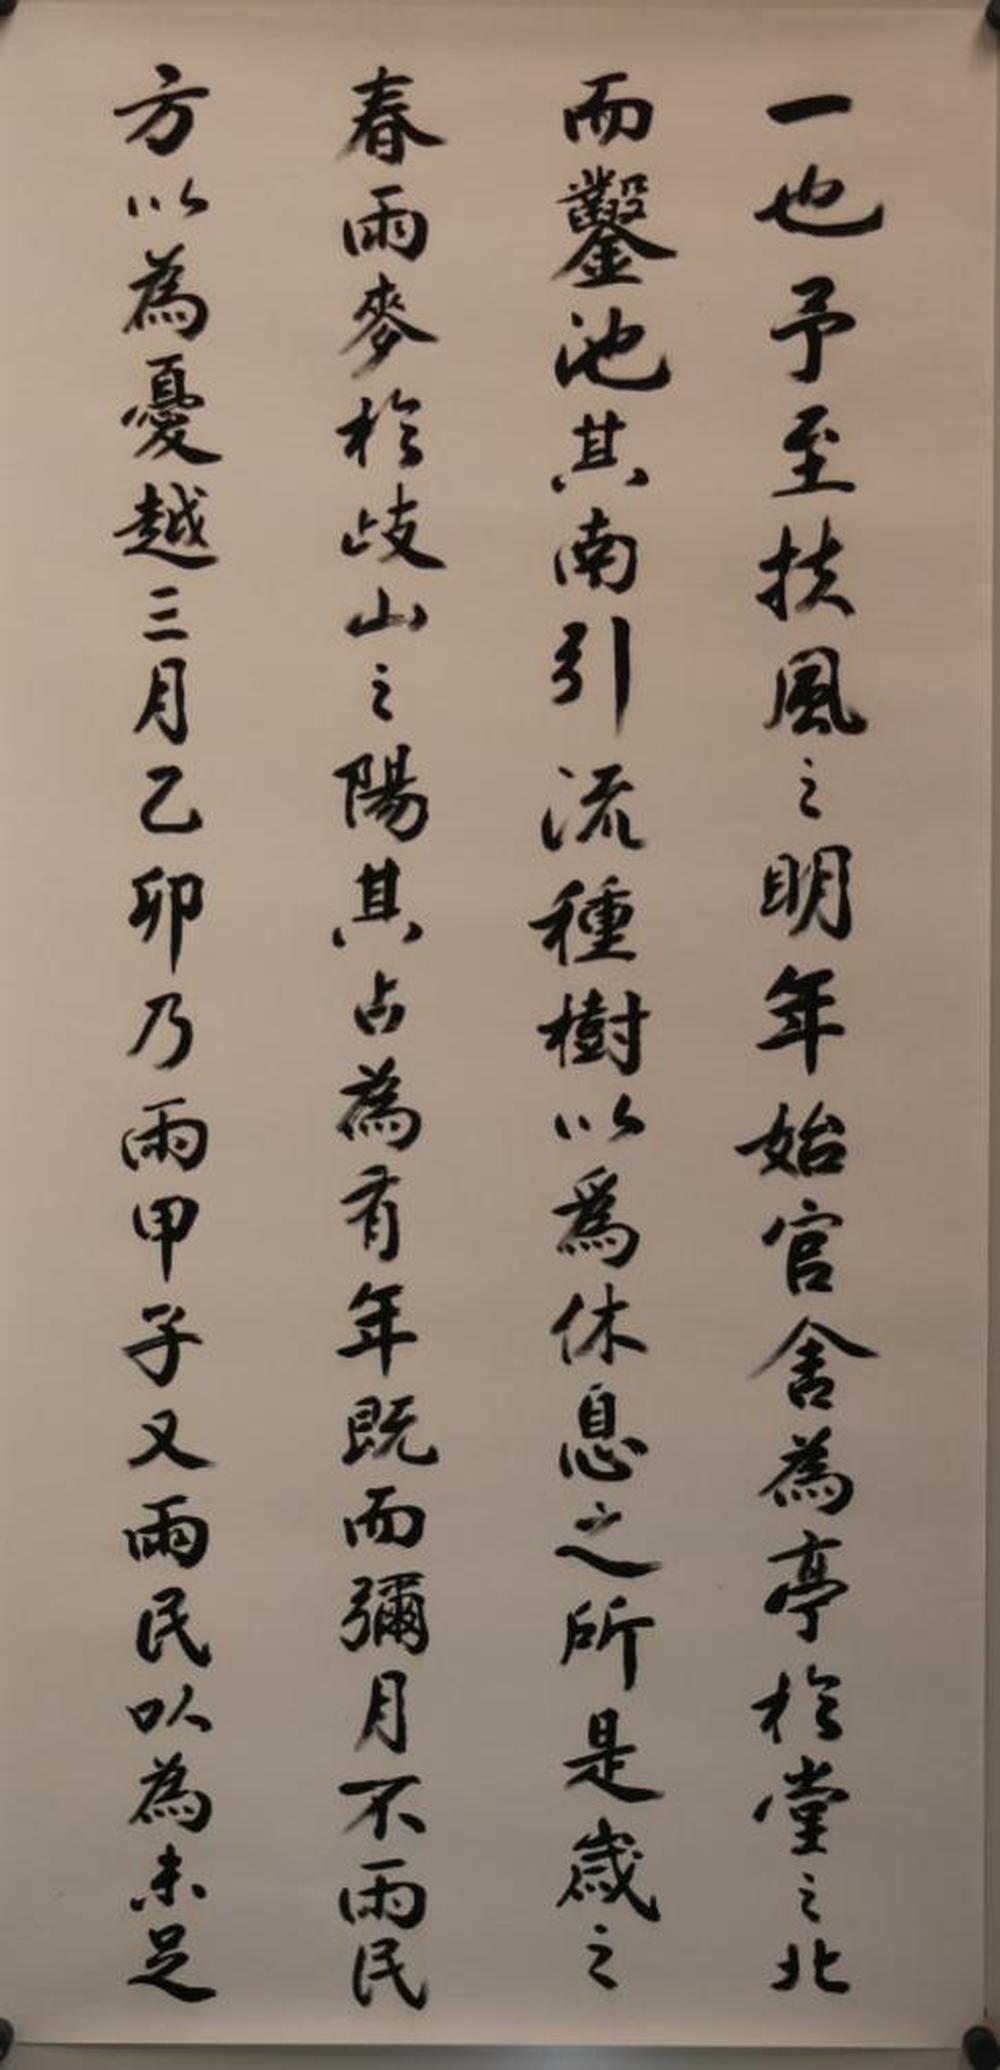 一也予至扶風之明年始官舍為亭於堂之北
而鑿池其南引流種樹以為休息之所是歲之
春雨麥於歧山之陽其占為有年既而彌月不雨民
方以為憂越三月乙卯乃雨甲子又雨民以為未足